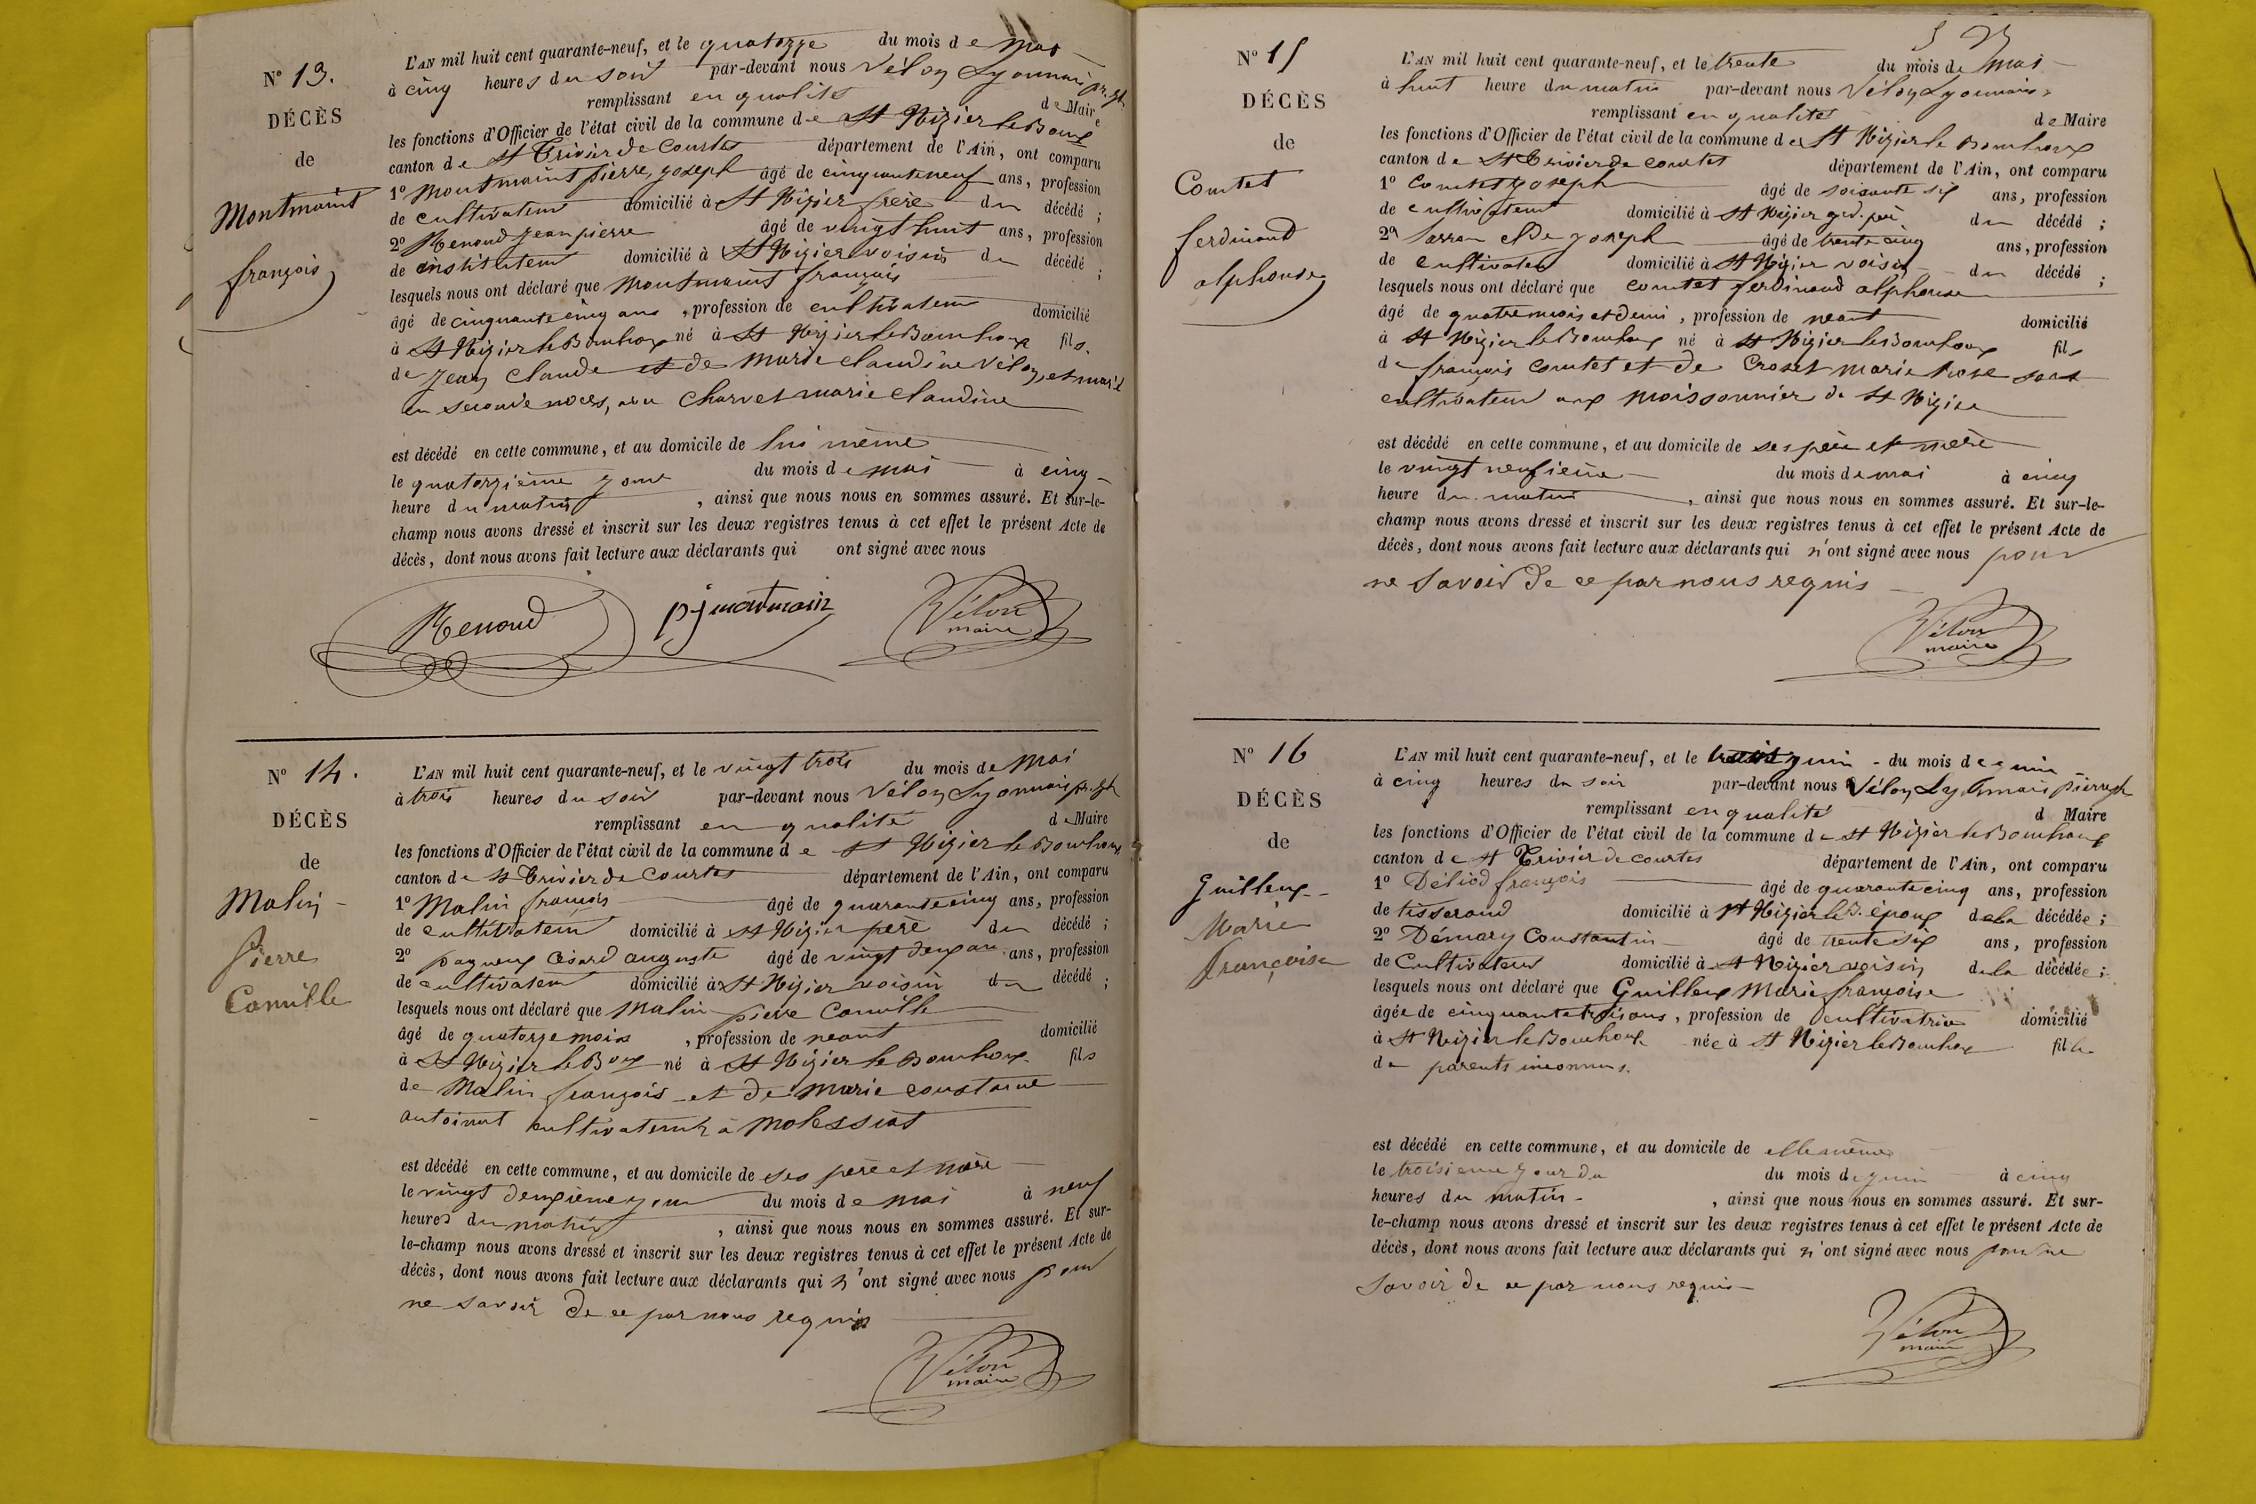 N° 13.
DÉCÈS
de
Montmaint
françois
L'AN mil huit cent quarante-neuf, et le quatorze du mois de mai
à cinq heures du soir par-devant nous Vélon Lyonnais
remplissant en qualité de Maire
les fonctions d'Officier de l'état civil de la commune de St Nizier le Boux
canton de St Trivier de Courtes département de l'Ain, ont comparu
1° Montmaint pierre, joseph âgé de cinquante neuf ans, profession
de cultivateur domicilié à St Nizier frère du décédé ;
2° Renoud jean pierre âgé de vingt huit ans, profession
de instituteur domicilié à St Nizier voisin du décédé ;
lesquels nous ont déclaré que Montmaint françois
âgé de cinquante cinq ans, profession de cultivateur domicilié
à St Nizier le Bouhoux né à St Nizier le Bouhoux fils
de Jean Claude et de Marie claudine Vélon, et marié
en seconde noces, avec Charvet marie claudine
est décédé en cette commune, et au domicile de lui même
le quatorzième jour du mois de mai à cinq
heure du matin, ainsi que nous nous en sommes assuré. Et sur-le-
champ nous avons dressé et inscrit sur les deux registres tenus à cet effet le présent Acte de
décès, dont nous avons fait lecture aux déclarants qui ont signé avec nous
Renoud pj montmain Vélon
maire
N° 14.
DÉCÈS
de
Malin
Pierre
Camille
L'AN mil huit cent quarante-neuf, et le vingt trois du mois de Mai
à trois heures du soir par-devant nous Vélon Lyonnais
remplissant en qualité de Maire
les fonctions d'Officier de l'état civil de la commune de St Nizier le Bouhoux
canton de St Trivier de Courtes département de l'Ain, ont comparu
1° Malin françois âgé de quarante cinq ans, profession
de cultivateur domicilié à St Nizier père du décédé ;
2° pagneux César auguste âgé de vingt deux ans, profession
de cultivateur domicilié à St Nizier voisin du décédé ;
lesquels nous ont déclaré que Malin pierre Camille
âgé de quatorze mois, profession de neant domicilié
à St Nizier le Boux né à St Nizier le Bouhoux fils
de Malin françois et de Marie constance
antoinat cultivateurs à Molessiat
est décédé en cette commune, et au domicile de ses père et mère
le vingt deuxième jour du mois de mai à neuf
heures du matin, ainsi que nous nous en sommes assuré. Et sur-
le-champ nous avons dressé et inscrit sur les deux registres tenus à cet effet le présent Acte de
décès, dont nous avons fait lecture aux déclarants qui n'ont signé avec nous pour
ne savoir de ce par nous requis
Vélon
maire
N° 15
DÉCÈS
de
Comtet
ferdinand
alphonse
L'AN mil huit cent quarante-neuf, et le trente du mois de Mai
à huit heure du matin par-devant nous Vélon Lyonnais
remplissant en qualité de Maire
les fonctions d'Officier de l'état civil de la commune de St Nizier le Bouhoux
canton de St Trivier de Courtes département de l'Ain, ont comparu
1° Comtet joseph âgé de soixante six ans, profession
de cultivateur domicilié à St Nizier gd. père du décédé ;
2° joseph âgé de trente cinq ans, profession
de cultivateur domicilié à St Nizier voisin du décédé ;
lesquels nous ont déclaré que comtet ferdinand alphonse
âgé de quatre mois et demi, profession de neant domicilié
à St Nizier le Bouhoux né à St Nizier le Bouhoux fils
de françois comtet et de Crozet marie Rose
cultivateur aux Moissonnier de St Nizier
est décédé en cette commune, et au domicile de ses père et mère
le vingt neufieme du mois de mai à cinq
heure du matin, ainsi que nous nous en sommes assuré. Et sur-le-
champ nous avons dressé et inscrit sur les deux registres tenus à cet effet le présent Acte de
décès, dont nous avons fait lecture aux déclarants qui n'ont signé avec nous pour
ne Savoir de ce par nous requis
Vélon
maire
N° 16
DÉCÈS
de
Guilleux
Marie
françoise
L'AN mil huit cent quarante-neuf, et le trois juin du mois de juin
à cinq heures du soir par-devant nous Vélon Lyonnais pierre jh
remplissant en qualité d Maire
les fonctions d'Officier de l'état civil de la commune de St Nizier le Bouhoux
canton de St Trivier de Courtes département de l'Ain, ont comparu
1° Déliod françois âgé de quarante cinq ans, profession
de tisserand domicilié à St Nizier le B. époux de la décédée ;
2° Démary Constantin âgé de trente six ans, profession
de Cultivateur domicilié à St Nizier voisin de la décédée ;
lesquels nous ont déclaré que Guilleux Marie françoise
âgée de cinquante trois ans, profession de cultivatrice domicilié
à St Nizier le Bouhoux née à St Nizier le Bouhoux fille
de parents inconnus.
est décédé en cette commune, et au domicile de elle même
le troisieme jour du du mois de juin à cinq
heures du matin, ainsi que nous nous en sommes assuré. Et sur-
le-champ nous avons dressé et inscrit sur les deux registres tenus à cet effet le présent Acte de
décès, dont nous avons fait lecture aux déclarants qui n'ont signé avec nous pour ne
Savoir de ce par nous requis
Vélon
maire